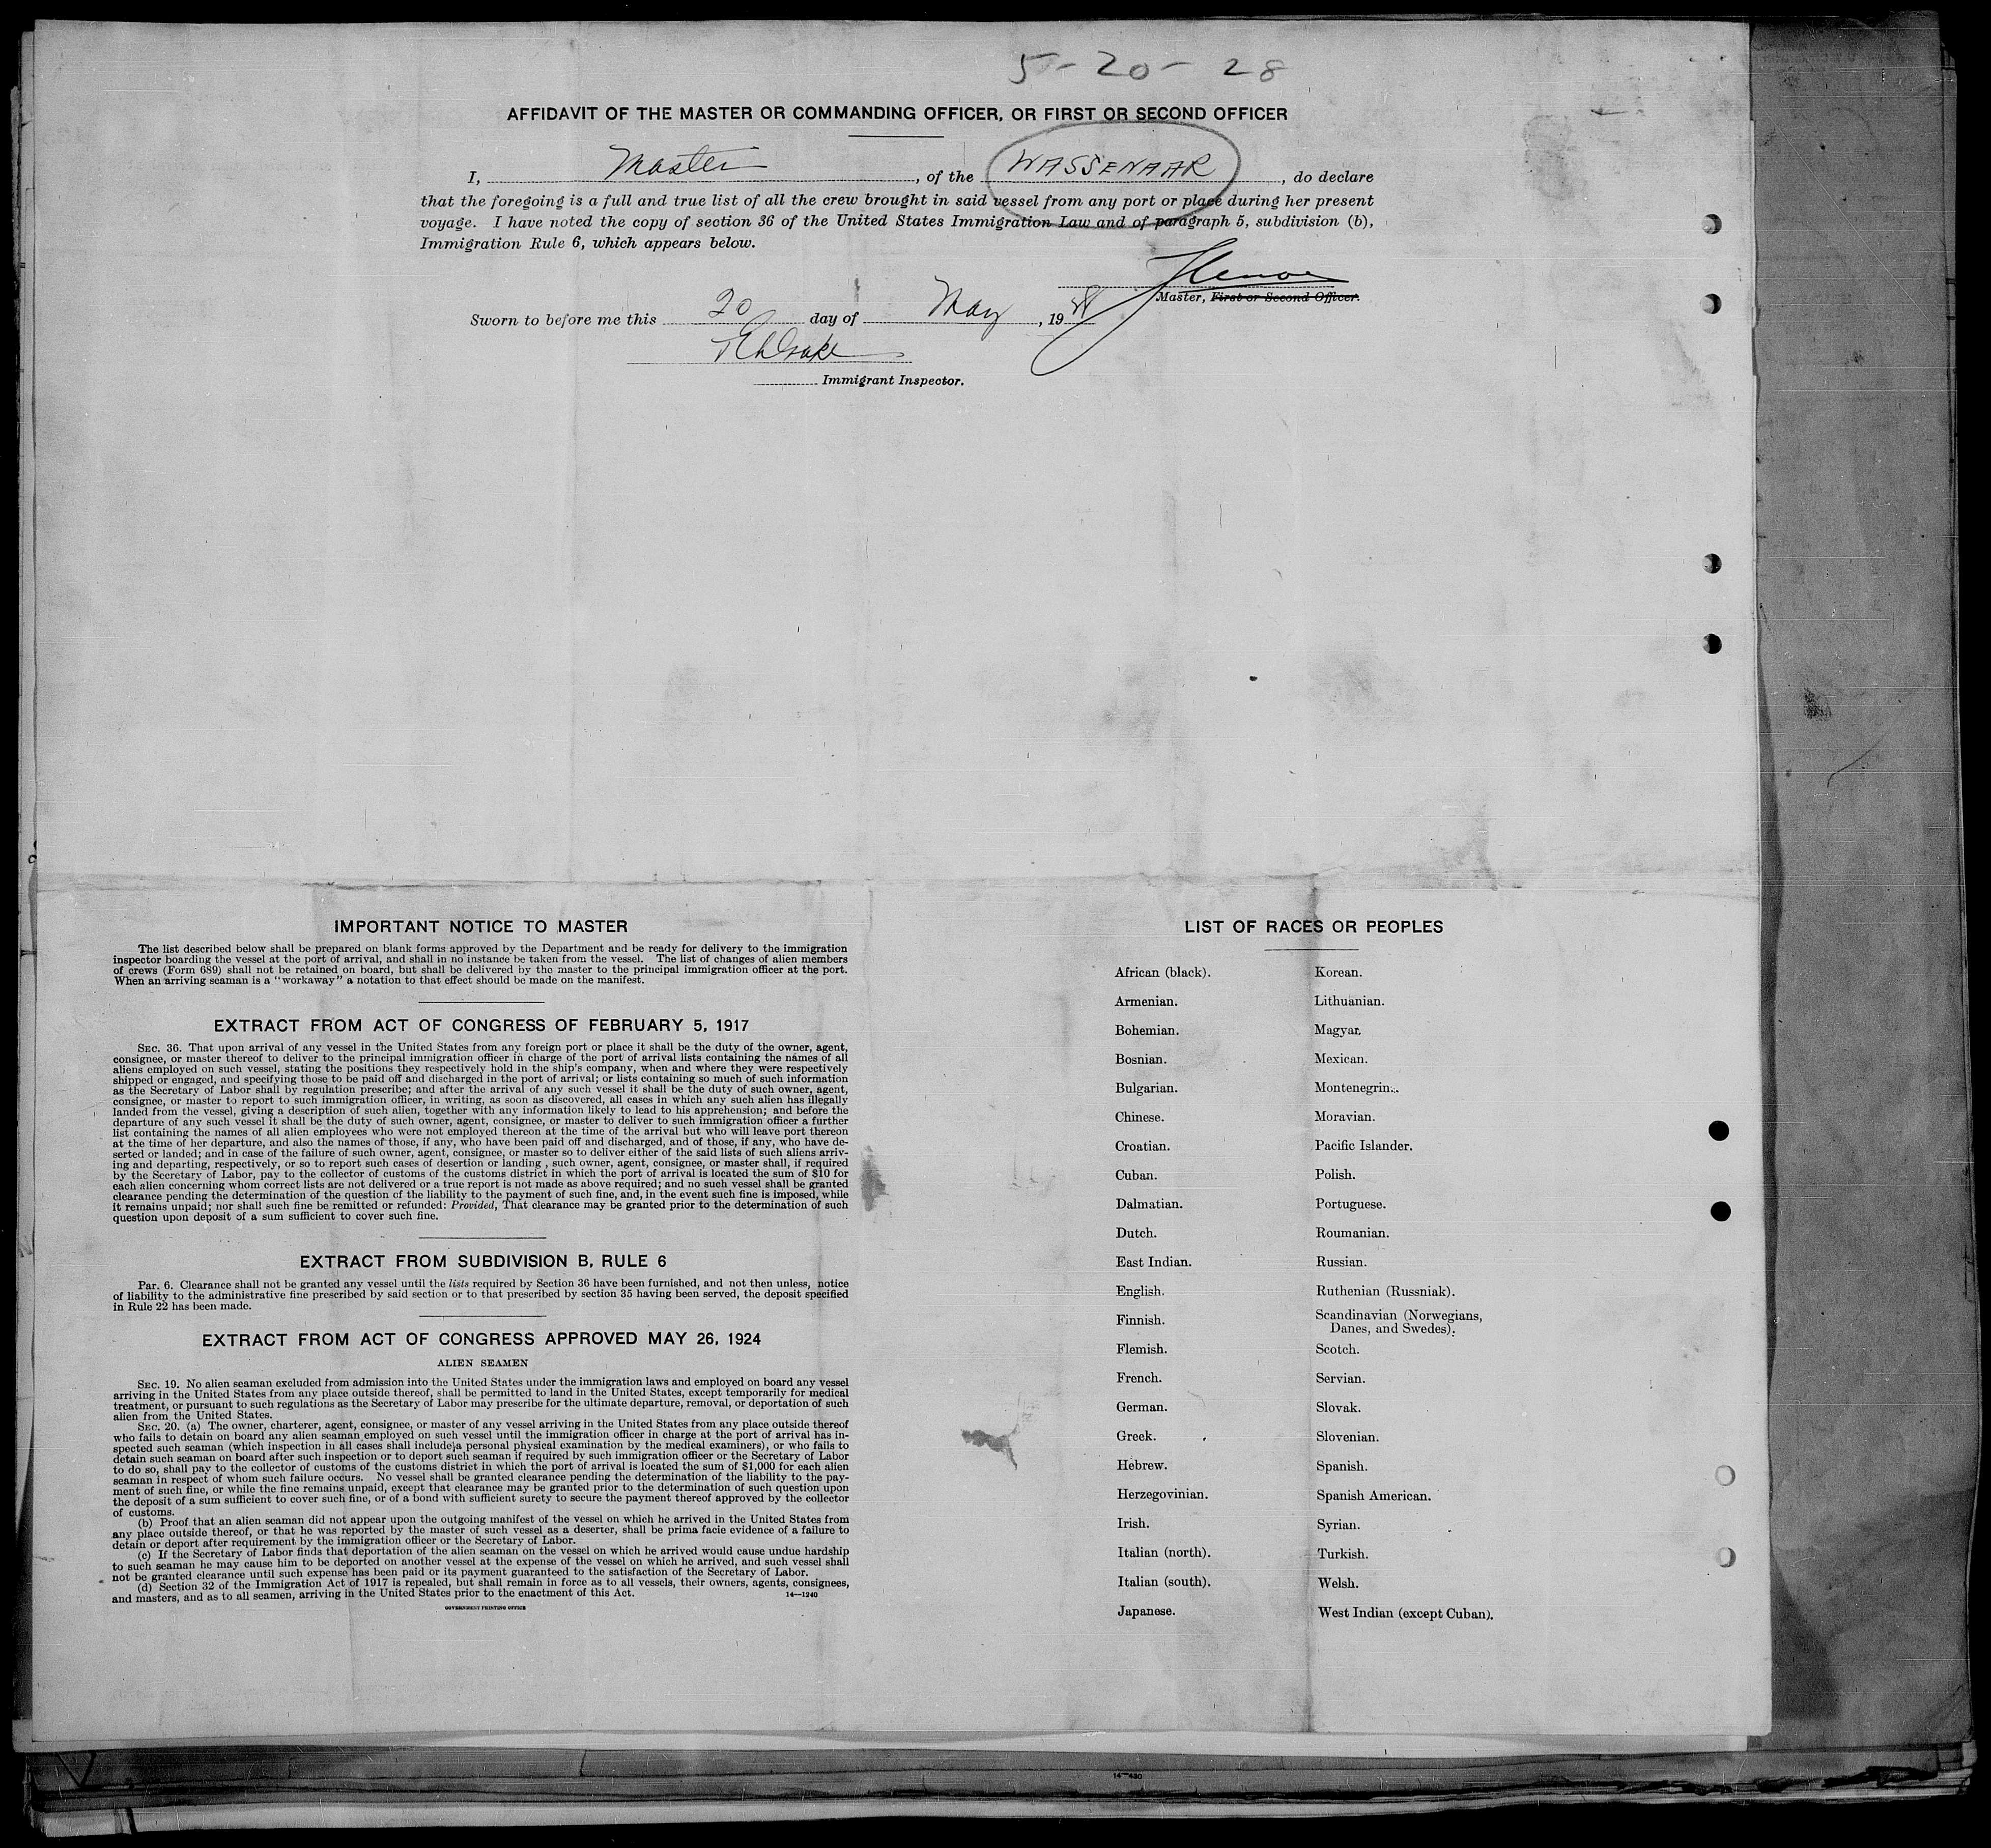 5-20-28
AFFIDAVIT OF THE MASTER OR COMMANDING OFFICER, OR FIRST OR SECOND OFFICER
I, Master, of the WASSENAAR, do declare
that the foregoing is a full and true list of all the crew brought in said vessel from any port or place during her present
voyage. I have noted the copy of section 36 of the United States Immigration Law and of paragraph 5, subdivision (b),
Immigration Rule 6, which appears below.
Master, First or Second Officer.
Sworn to before me this 20 day of May, 19
Immigrant Inspector.
IMPORTANT NOTICE TO MASTER
The list described below shall be prepared on blank forms approved by the Department and be ready for delivery to the immigration
inspector boarding the vessel at the port of arrival, and shall in no instance be taken from the vessel. The list of changes of alien members
of crews (Form 689) shall not be retained on board, but shall be delivered by the master to the principal immigration officer at the port.
When an arriving seaman is a "workaway" a notation to that effect should be made on the manifest.
EXTRACT FROM ACT OF CONGRESS OF FEBRUARY 5, 1917
SEC. 36. That upon arrival of any vessel in the United States from any foreign port or place it shall be the duty of the owner, agent,
consignee, or master thereof to deliver to the principal immigration officer in charge of the port of arrival lists containing the names of all
aliens employed on such vessel, stating the positions they respectively hold in the ship's company, when and where they were respectively
shipped or engaged, and specifying those to be paid off and discharged in the port of arrival; or lists containing so much of such information
as the Secretary of Labor shall by regulation prescribe; and after the arrival of any such vessel it shall be the duty of such owner, agent,
consignee, or master to report to such immigration officer, in writing, as soon as discovered, all cases in which any such alien has illegally
landed from the vessel, giving a description of such alien, together with any information likely to lead to his apprehension; and before the
departure of any such vessel it shall be the duty of such owner, agent, consignee, or master to deliver to such immigration officer a further
list containing the names of all alien employees who were not employed thereon at the time of the arrival but who will leave port thereon
at the time of her departure, and also the names of those, if any, who have been paid off and discharged, and of those, if any, who have de-
serted or landed; and in case of the failure of such owner, agent, consignee, or master so to deliver either of the said lists of such aliens arriv-
ing and departing, respectively, or so to report such cases of desertion or landing , such owner, agent, consignee, or master shall, if required
by the Secretary of Labor, pay to the collector of customs of the customs district in which the port of arrival is located the sum of $10 for
each alien concerning whom correct lists are not delivered or a true report is not made as above required; and no such vessel shall be granted
clearance pending the determination of the question of the liability to the payment of such fine, and, in the event such fine is imposed, while
it remains unpaid; nor shall such fine be remitted or refunded: Provided, That clearance may be granted prior to the determination of such
question upon deposit of a sum sufficient to cover such fine.
EXTRACT FROM SUBDIVISION B, RULE 6
Par. 6. Clearance shall not be granted any vessel until the lists required by Section 36 have been furnished, and not then unless, notice
of liability to the administrative fine prescribed by said section or to that prescribed by section 35 having been served, the deposit specified
in Rule 22 has been made.
EXTRACT FROM ACT OF CONGRESS APPROVED MAY 26, 1924
ALIEN SEAMEN
SEC. 19. No alien seaman excluded from admission into the United States under the immigration laws and employed on board any vessel
arriving in the United States from any place outside thereof, shall be permitted to land in the United States, except temporarily for medical
treatment, or pursuant to such regulations as the Secretary of Labor may prescribe for the ultimate departure, removal, or deportation of such
alien from the United States.
SEC. 20. (a) The owner, charterer, agent, consignee, or master of any vessel arriving in the United States from any place outside thereof
who fails to detain on board any alien seaman employed on such vessel until the immigration officer in charge at the port of arrival has in-
spected such seaman (which inspection in all cases shall include a personal physical examination by the medical examiners), or who fails to
detain such seaman on board after such inspection or to deport such seaman if required by such immigration officer or the Secretary of Labor
to do so, shall pay to the collector of customs of the customs district in which the port of arrival is located the sum of $1,000 for each alien
seaman in respect of whom such failure occurs. No vessel shall be granted clearance pending the determination of the liability to the pay-
ment of such fine, or while the fine remains unpaid, except that clearance may be granted prior to the determination of such question upon
the deposit of a sum sufficient to cover such fine, or of a bond with sufficient surety to secure the payment thereof approved by the collector
of customs.
(b) Proof that an alien seaman did not appear upon the outgoing manifest of the vessel on which he arrived in the United States from
any place outside thereof, or that he was reported by the master of such vessel as a deserter, shall be prima facie evidence of a failure to
detain or deport after requirement by the immigration officer or the Secretary of Labor.
(c) If the Secretary of Labor finds that deportation of the alien seaman on the vessel on which he arrived would cause undue hardship
to such seaman he may cause him to be deported on another vessel at the expense of the vessel on which he arrived, and such vessel shall
not be granted clearance until such expense has been paid or its payment guaranteed to the satisfaction of the Secretary of Labor.
(d) Section 32 of the Immigration Act of 1917 is repealed, but shall remain in force as to all vessels, their owners, agents, consignees,
and masters, and as to all seamen, arriving in the United States prior to the enactment of this Act. 14—1240
GOVERNMENT PRINTING OFFICE
LIST OF RACES OR PEOPLES
African (black).
Armenian.
Bohemian.
Bosnian.
Bulgarian.
Chinese.
Croatian.
Cuban.
Dalmatian.
Dutch.
East Indian.
English.
Finnish.
Flemish.
French.
German.
Greek.
Hebrew.
Herzegovinian.
Irish.
Italian (north).
Italian (south).
Japanese.
Korean.
Lithuanian.
Magyar.
Mexican.
Montenegrin.
Moravian.
Pacific Islander.
Polish.
Portuguese.
Roumanian.
Russian.
Ruthenian (Russniak).
Scandinavian (Norwegians,
Danes, and Swedes).
Scotch.
Servian.
Slovak.
Slovenian.
Spanish.
Spanish American.
Syrian.
Turkish.
Welsh.
West Indian (except Cuban).
14—430